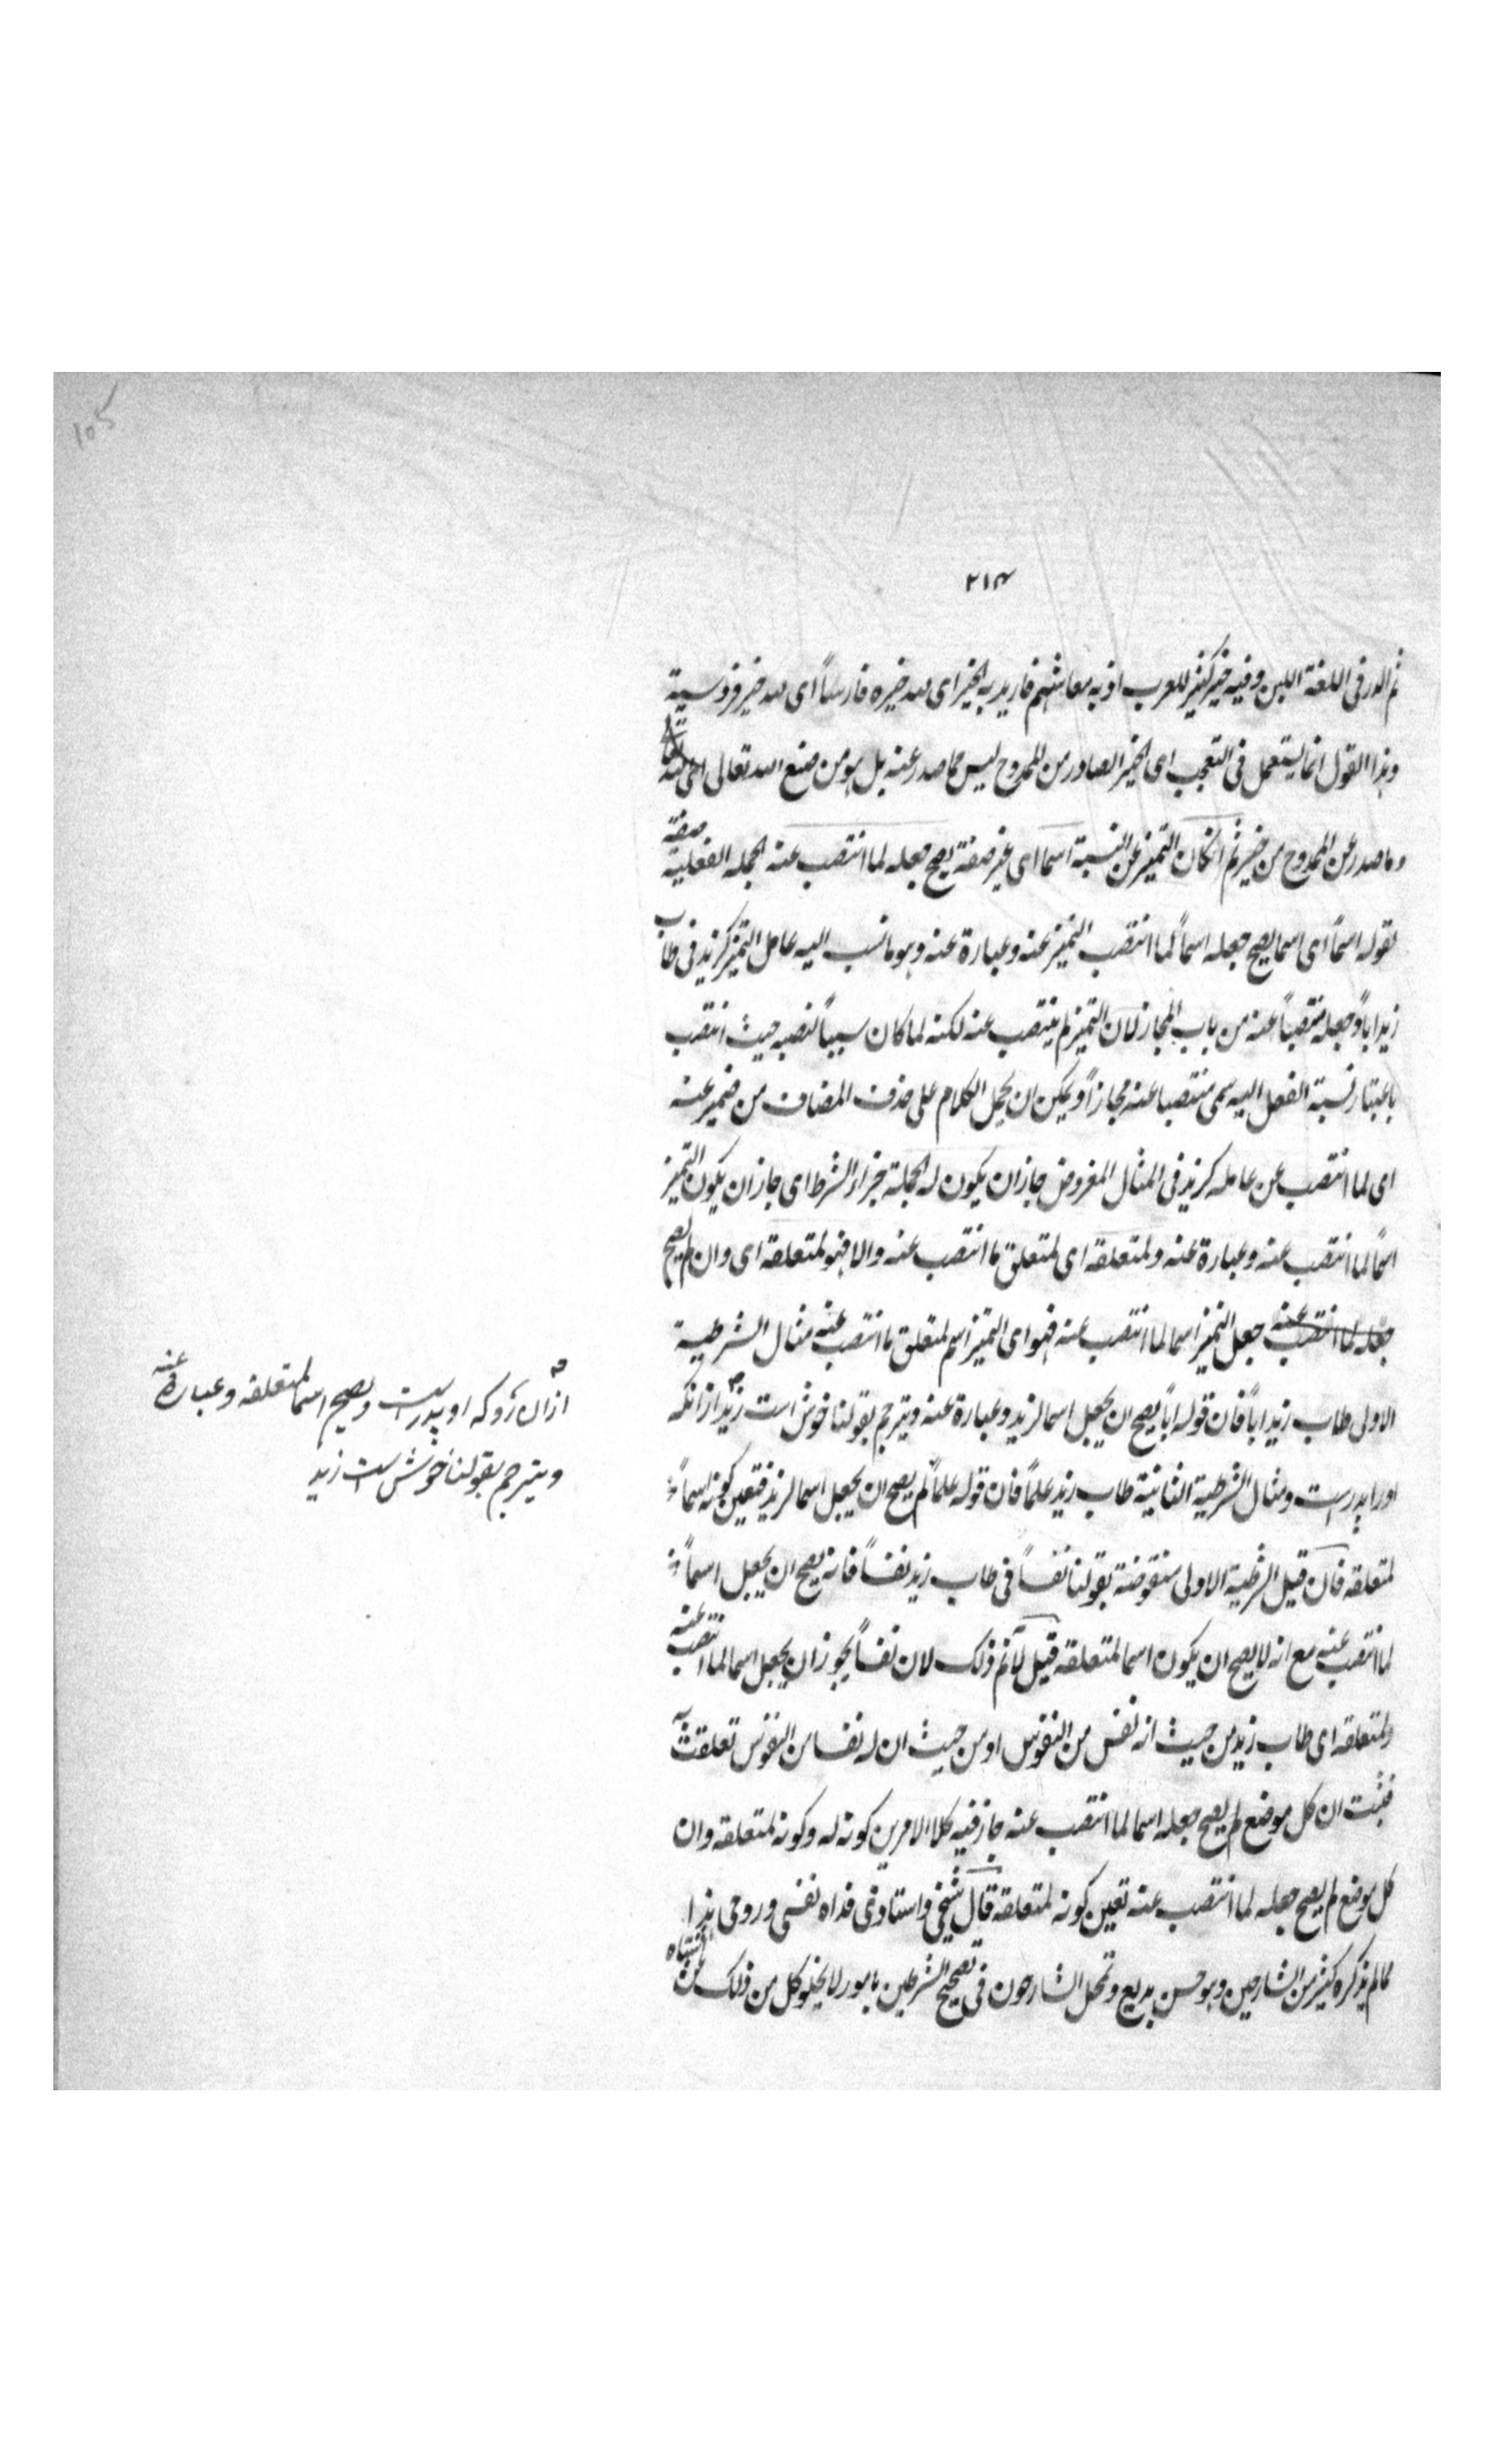 105
٢١٣
ثم الدر فى اللغة اللبن وفيه خير كثير للعرب اذ به معاشهم فاريد به الخير اى لله خيره فارسًا اى لله خير فروسية
وهذا القول انما يستعمل فى التعجب اى الخير الصادر من الممدوح ليس مما صدر عنه بل هو من صنع الله تعالى
وما صدر عن الممدوح من خير ثم ان كان التميز عن النسبة اسما اى غير صفة يصح جعله لما انتصب عنه الجملة الفعلية صفة
لقوله اسمًا اى اسما يصح جعله اسمًا لما انتصب التميز عنه وعبارة عنه وهو ما نسب اليه عامل التميز كزيد فى طاب
زيد اباً وجعله منتصباً عنه من باب المجاز لان التميز لم ينتصب عنه لكنه لما كان سبباً لنصبه حيث انتصب
باعتبار نسبة الفعل اليه سمى منتصبا عنه مجازاً ويمكن ان يحمل الكلام على حذف المضاف من ضمير عنه
اى لما انتصب عن عامله كزيد فى المثال المفروض جاز ان يكون له الجملة جزاء الشرط اى جاز ان يكون التميز
اسمًا لما انتصب عنه وعبارة عنه ولمتعلقه اى لمتعلق ما انتصب عنه والا فهو لمتعلقه اى وان لم يصح
جعله لما انتصب عنه جعل التميز اسما لما انتصب عنه فهو اى التميز اسم لمتعلق ما انتصب عنه مثال الشرطية
الاولى طاب زيد اباً فان قوله اباً يصح ان يجعل اسما لزيد وعبارة عنه ويترجم بقولنا خوش است زيد از انكه
اورا پدرست ومثال الشرطية الثانية طاب زيد علمًا فان قوله علمًا لم يصح ان يجعل اسما لزيد فتعين كونه اسماً
لمتعلقه فان قيل الشرطية الاولى منقوضة بقولنا نفساً فى طاب زيد نفساً فانه يصح ان يجعل اسماً
لما انتصب عنه مع انه لا يصح ان يكون اسما لمتعلقه قيل لا نم ذلك لان نفساً يجوز ان يجعل اسما لما انتصب عنه
ولمتعلقه اى طاب زيد من حيث انه نفس من النفوس او من حيث ان له نفسا من النفوس تعلقت به
فثبت ان كل موضع لم يصح جعله اسما لما انتصب عنه جاز فيه كلا الامرين كونه له وكونه لمتعلقه وان
كل موضع لم يصح جعله لما انتصب عنه تعين كونه لمتعلقه قال شيخى واستاذى فداه نفسى وروحى هذا
مما لم يذكره كثير من الشارحين وهو حسن بديع وتمحل الشارحون فى تصحيح الشرطين بامور لا يخلو كل من ذلك عن اشتباه
ازان رو كه او پدرست ويصح اسما لمتعلقه وعبارة عنه
ويترجم بقولنا خوش ست زيد